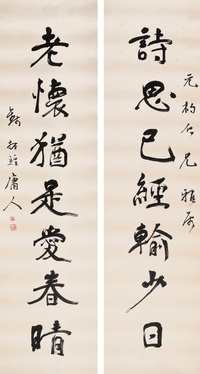 元仁兄雅屬
詩思已經輸少日
老懷猶是愛春晴
庸人